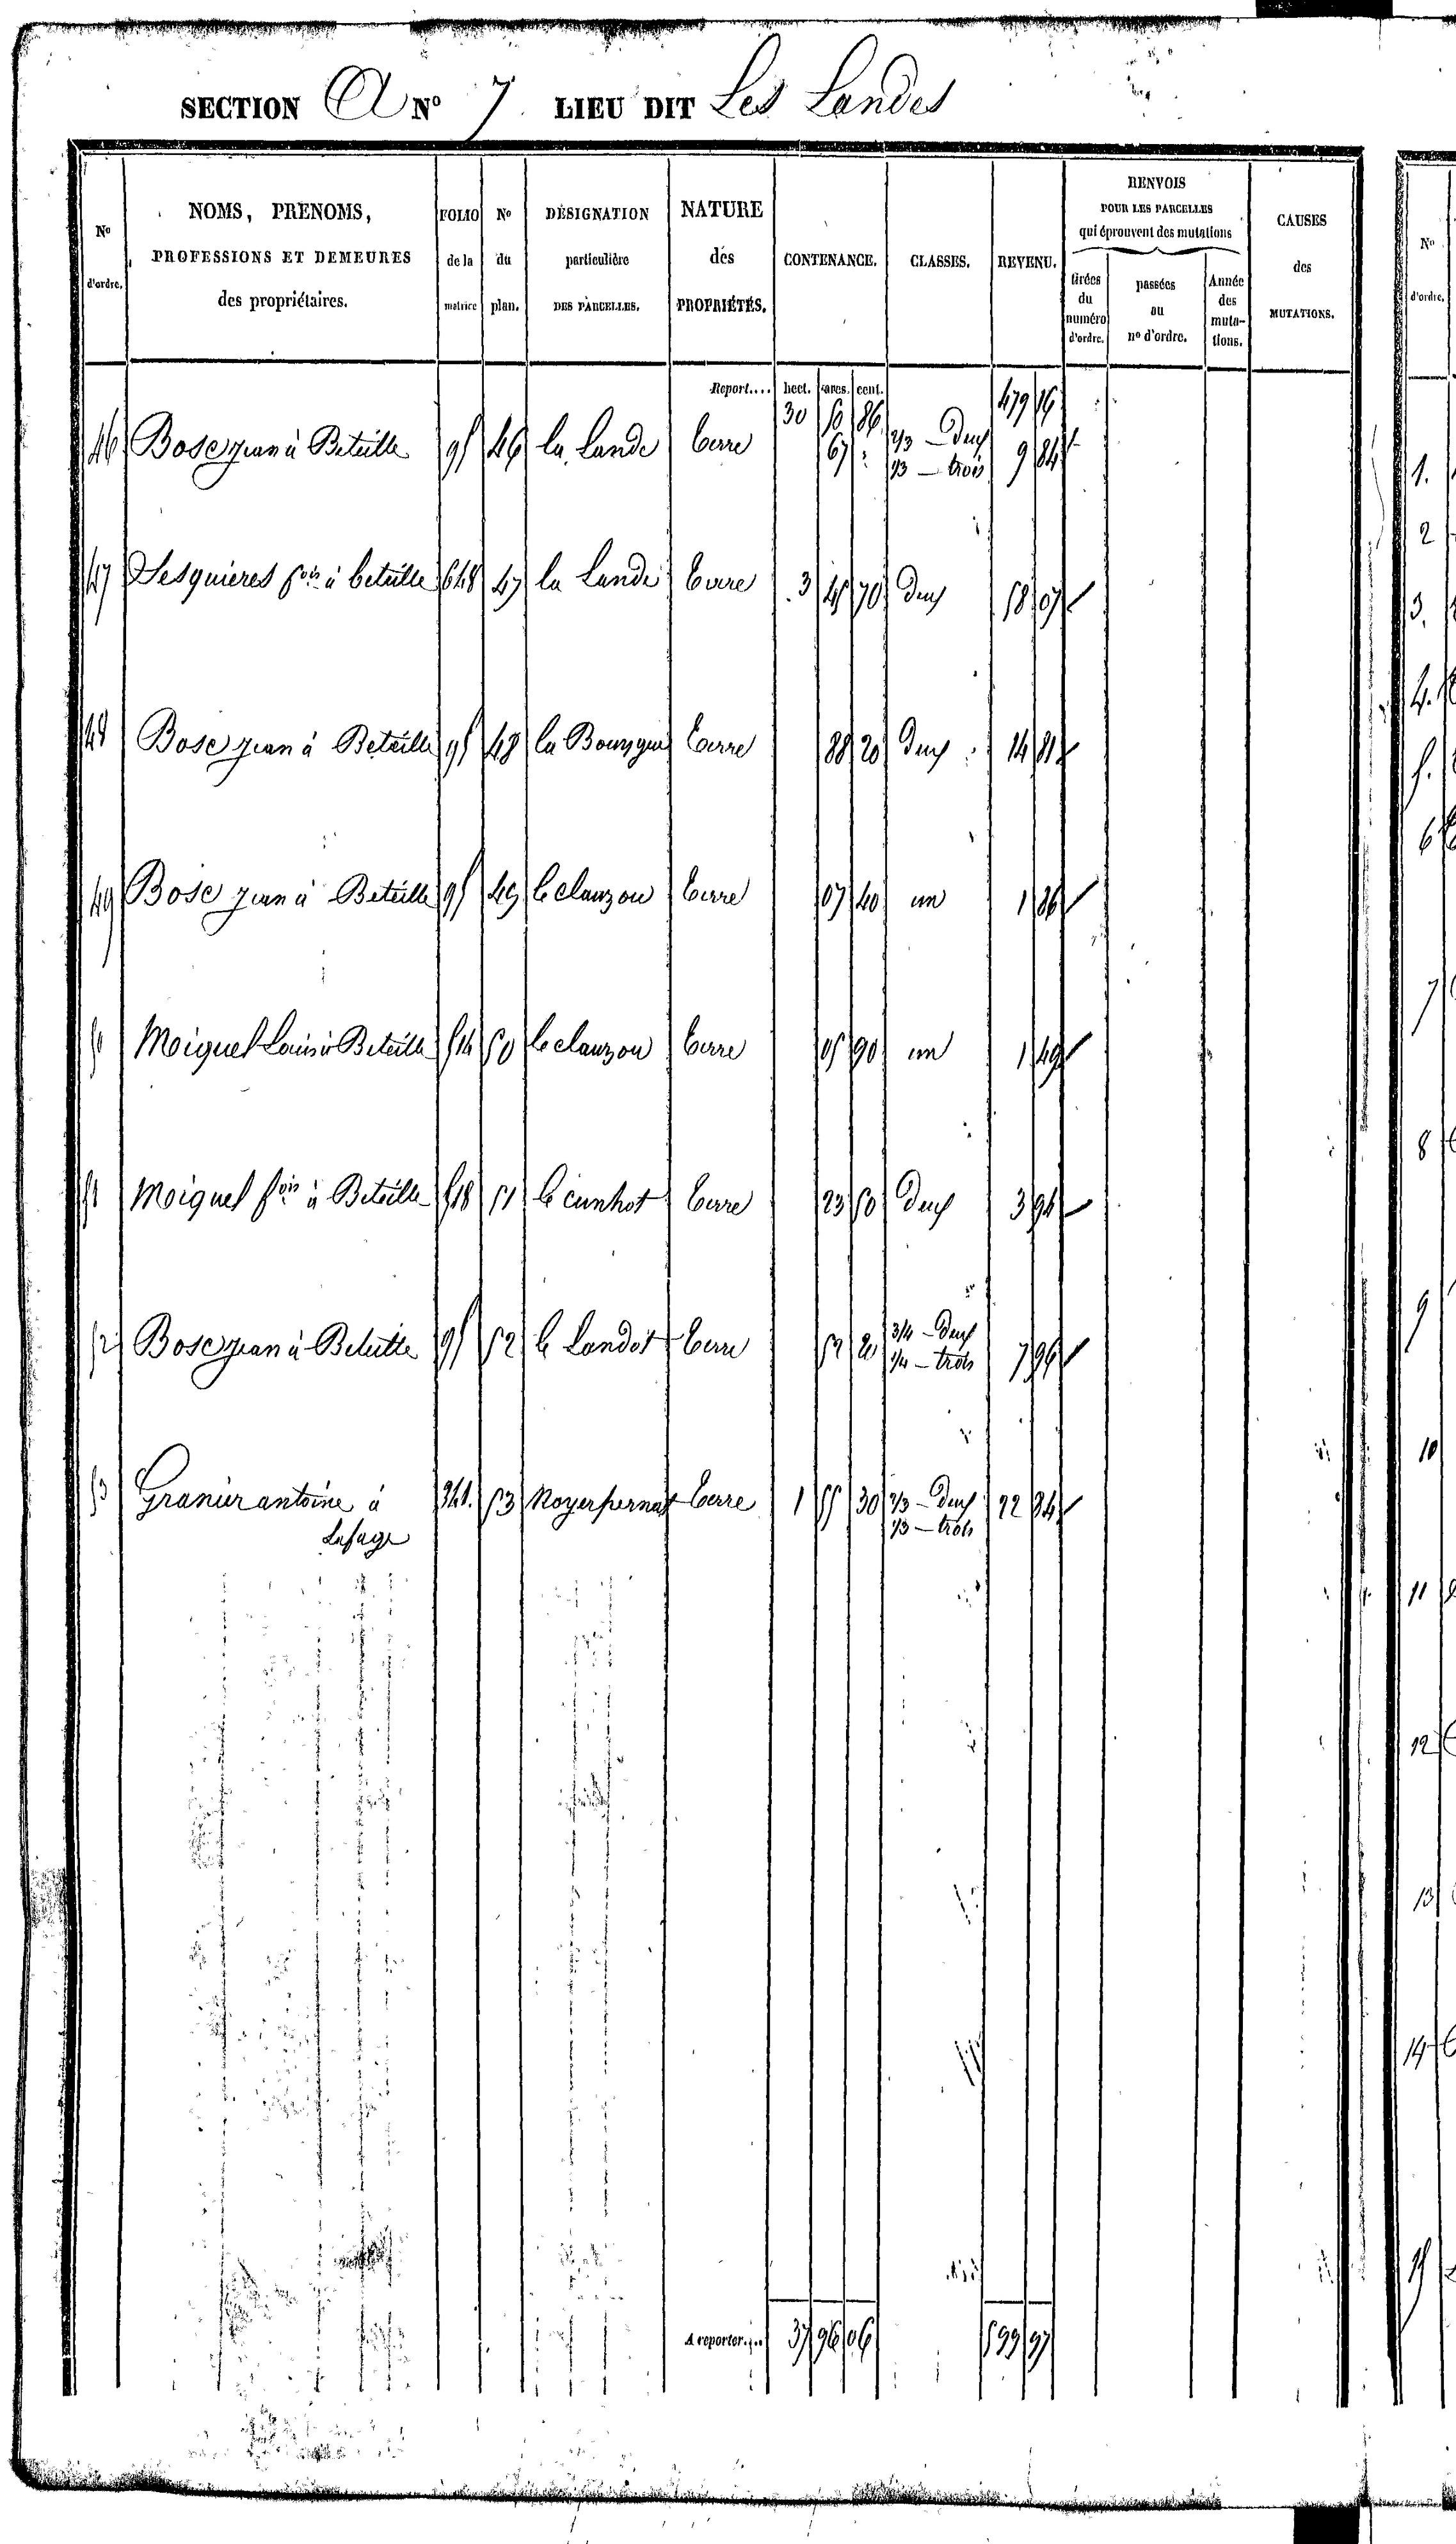 SECTION A N° 7 LIEU DIT Les Landes
N° d'ordre.
NOMS, PRÉNOMS,
PROFESSIONS ET DEMEURES
des propriétaires.
FOLIO de la matrice
N° du plan.
DÉSIGNATION particulière DES PARCELLES.
NATURE des PROPRIÉTÉS.
CONTENANCE.
CLASSES.
REVENU.
RENVOIS
POUR LES PARCELLES
qui éprouvent des mutations
tirées du numéro d'ordre.
passées au n° d'ordre.
Année des muta-tions.
CAUSES des MUTATIONS.
N° d'ordre.
Report.... hect. ares. cent.
30 50 86 479 16
46 Bosc jean à Beteille 95 46 la Lande terre 67 : 2/3 - deux 9 84
1/3 - trois
47 Lesquieres fois à beteille 648 47 la Lande terre 3 45 70 deux 58 07
48 Bosc jean à Beteille 95 48 la Bouygue terre 88 20 deux 14 81
49 Bosc jean à Beteille 95 49 le clauzou terre 07 40 un 1 86
50 Moiquel Louis à Beteille 514 50 le clauzou terre 05 90 un 1 49
51 Moiquel fois à Beteille 518 51 le cunhot terre 23 50 deux 3 94
52 Bosc jean à Beteille 95 52 le Landot terre 52 20 3/4 - deux 7 96
1/4 - trois
53 Granier antoine à 341. 53 Noyerpernat terre 1 55 30 2/3 - deux 22 84
Lafage 1/3 - trois
A reporter.... 37 96 06 599 97
1.
2
3.
4.
5.
6
7
8
9
10
11
12
13
14
15